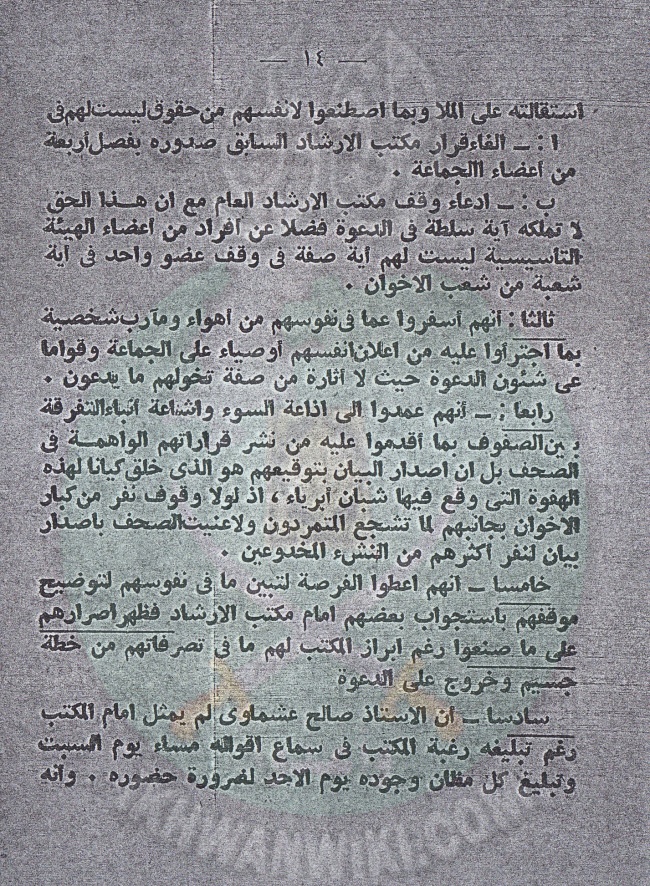 — ١٤ —
استقالته على الملا وبما اصطنعوا لانفسهم من حقوق ليست لهم فى
ا : ـ الغاء قرار مكتب الارشاد السابق صدوره بفصل أربعة
من أعضاء االجماعة .
ب : ـ ادعاء وقف مكتب الارشاد العام مع ان هـذا الحق
لا تملكه آية سلطة فى الدعوة فضلا عن أفراد من أعضاء الهيئة
التأسيسية ليست لهم أية صفة فى وقف عضو واحد فى أية
شعبة من شعب الاخوان .
ثالثا : أنهم أسفروا عما فى نفوسهم من أهواء ومآرب شخصية
بما اجترأوا عليه من اعلان انفسهم أوصياء على الجماعة وقواما
عى شئون الدعوة حيث لا أثارة من صفة تخولهم ما يدعون .
رابعا : ـ أنهم عمدوا الى اذاعة السوء واشاعة أنباء التفرقة
بين الصفوف بما أقدموا عليه من نشر قراراتهم الواهمـة فى
الصحف بل ان اصدار البيان بتوقيعهم هو الذى خلق كيانا لهذه
الهفوة التى وقع فيها شبان أبرياء ، اذ لولا وقوف نفر من كبار
الاخوان بجانبهم لما تشجع المتمردون ولا عنيت الصحف باصدار
بيان لنفر أكثرهم من النشء المخدوعين .
خامسا ـ انهم اعطوا الفرصة لتبين ما فى نفوسهم لتوضيح
موقفهم باستجواب بعضهم امام مكتب الارشاد فظهر اصرارهم
على ما صنعوا رغم ابراز المكتب لهم ما فى تصرفاتهم من خطة
جسيم وخروج على الدعوة
سادسا ـ أن الاستاذ صالح عشماوى لم يمثل امام المكتب
رغم تبليغه رغبة المكتب فى سماع اقواله مساء يوم السبت
وتبليغ كل مظان وجوده يوم الاحد لضرورة حضوره . وأنه
IKHWANWIKI.COM